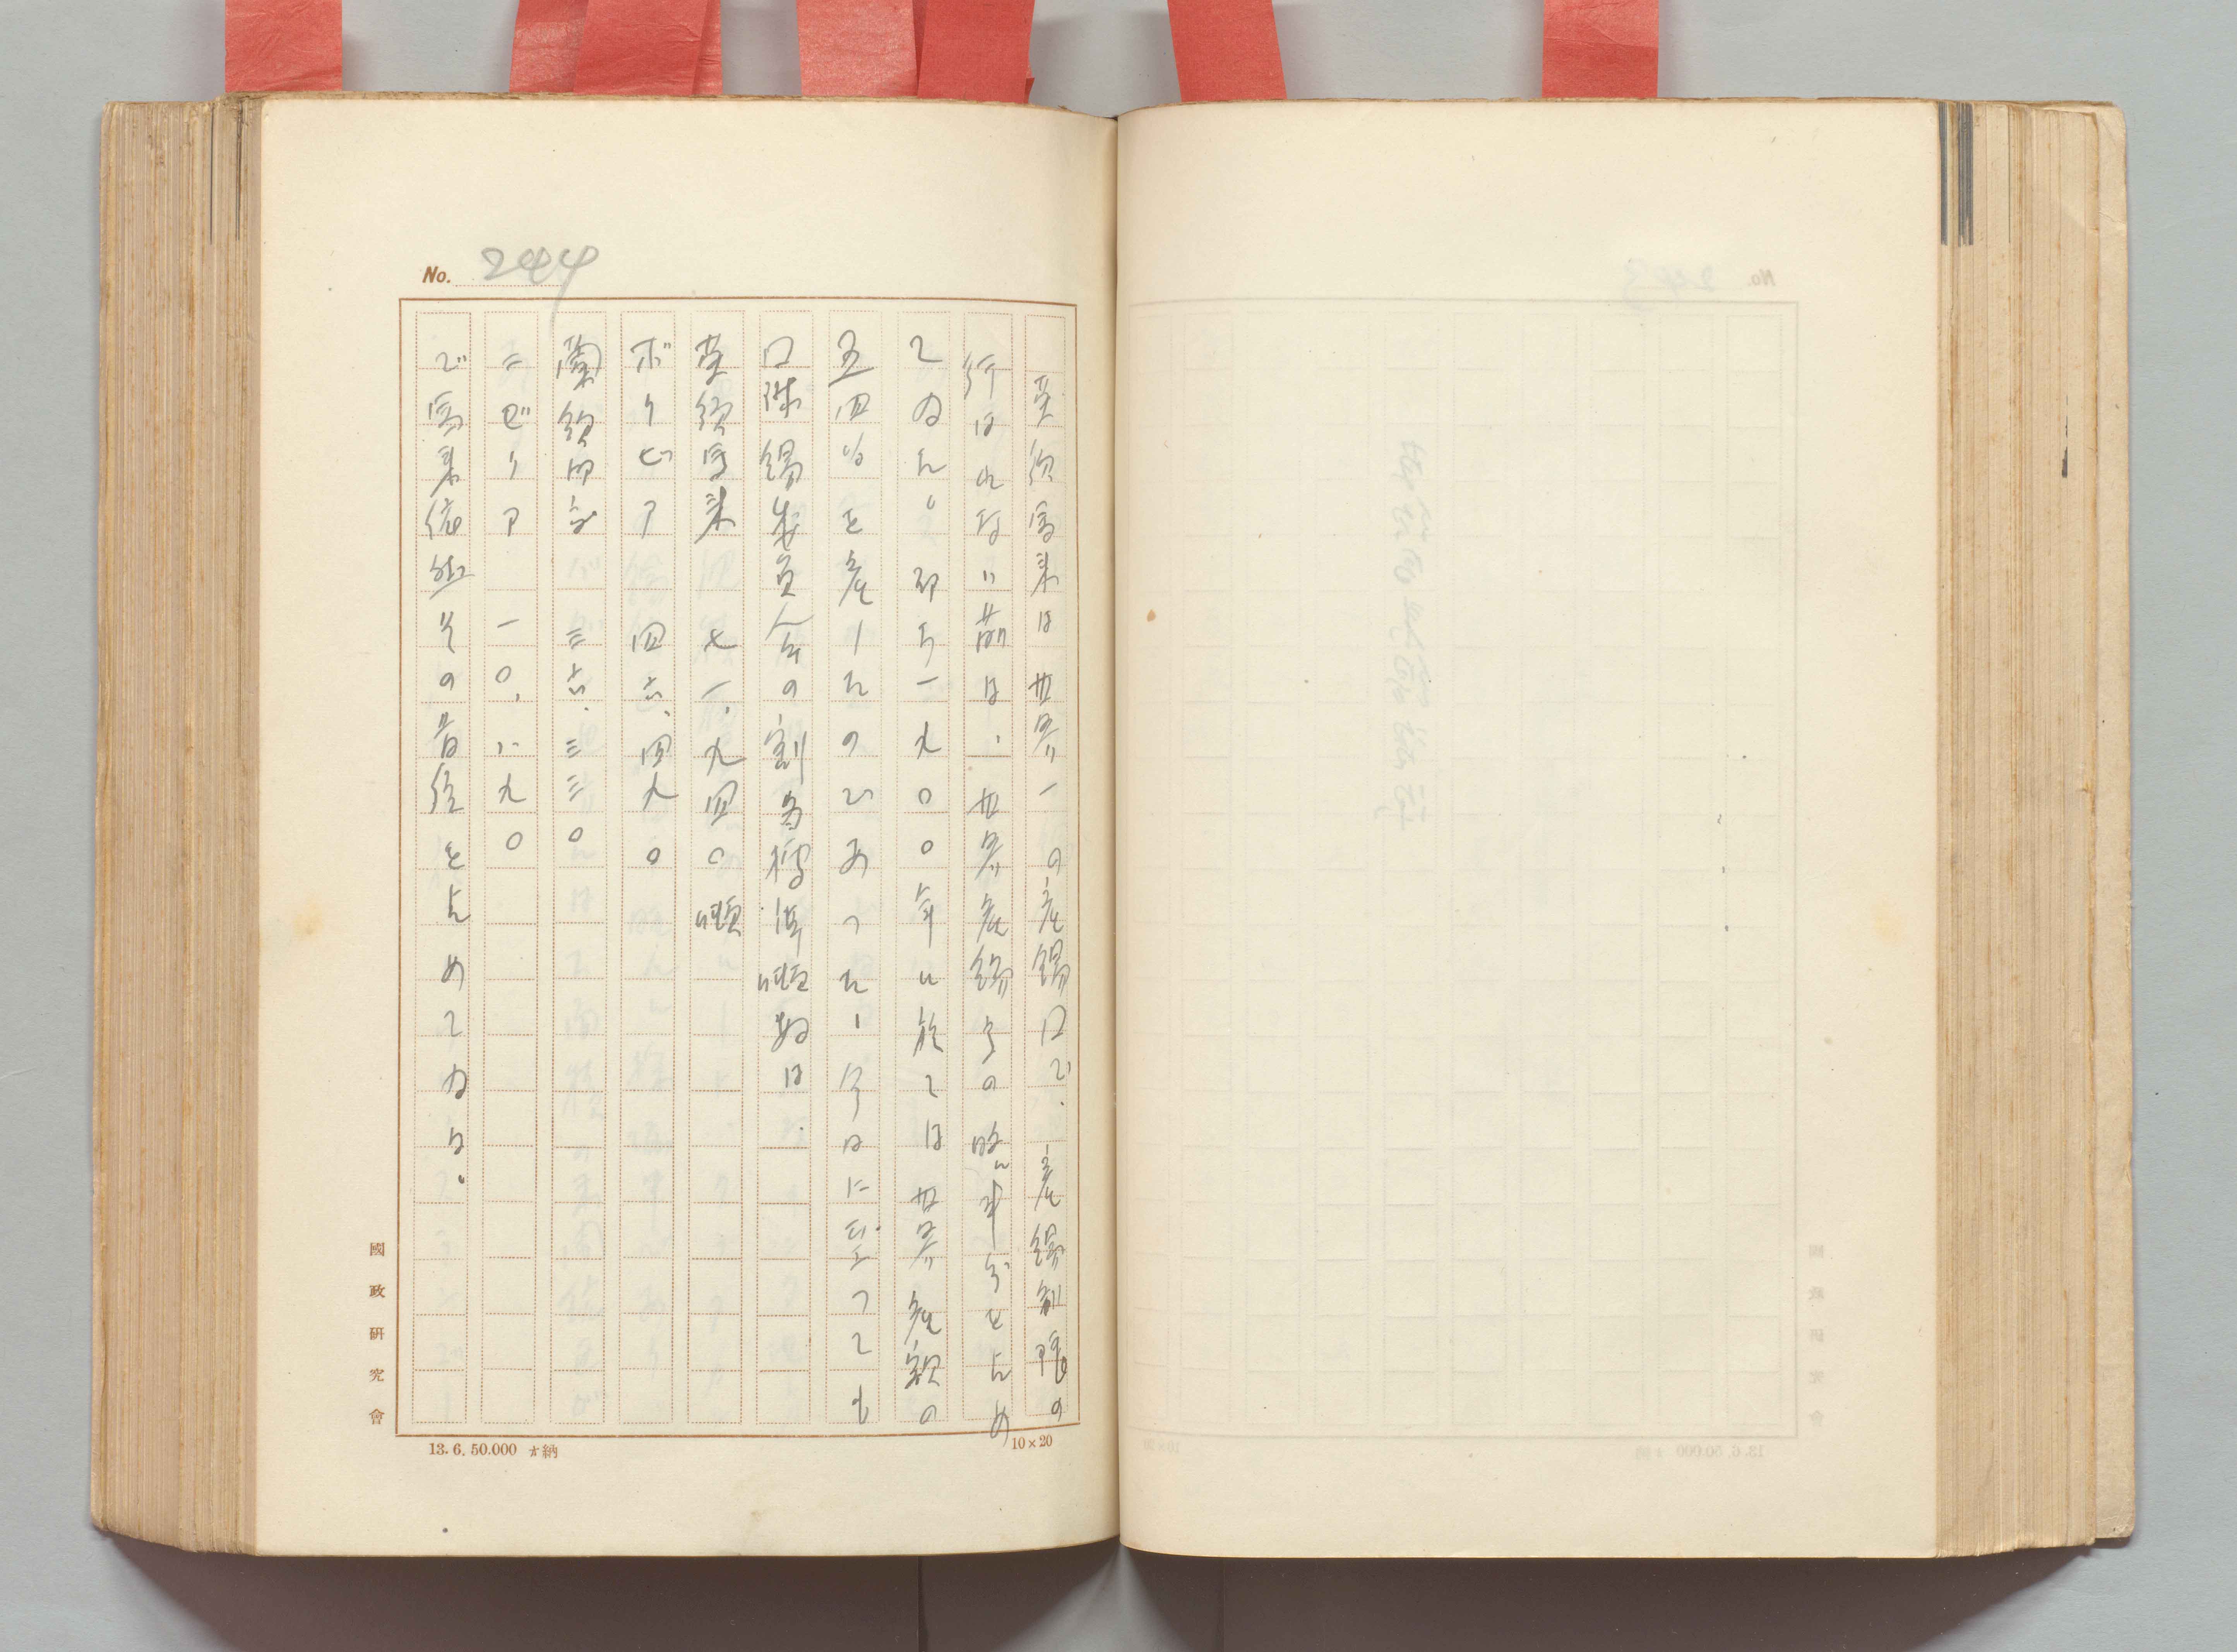 No. 244
英領馬来は世界一の産錫国で、産錫制限の
行はれな以前は、世界産錫高の略半分を占め
てゐた。即ち一九〇〇年に於ては世界産額の
五四％を産したのであつた。今日に至つても
国際錫委員会の割当標準噸数は
英領馬来 七一、九四〇噸
ボリビア 四六、四九〇
蘭領印度 三六、三三〇
ニゼリア 一〇、八九〇
で馬来依然その首位を占めてゐる。
國政研究會
13. 6. 50.000 納
10×20